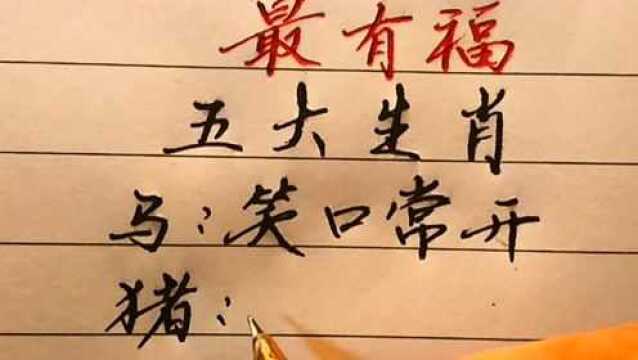 最有福
五大生肖
马:笑口常开
猪: